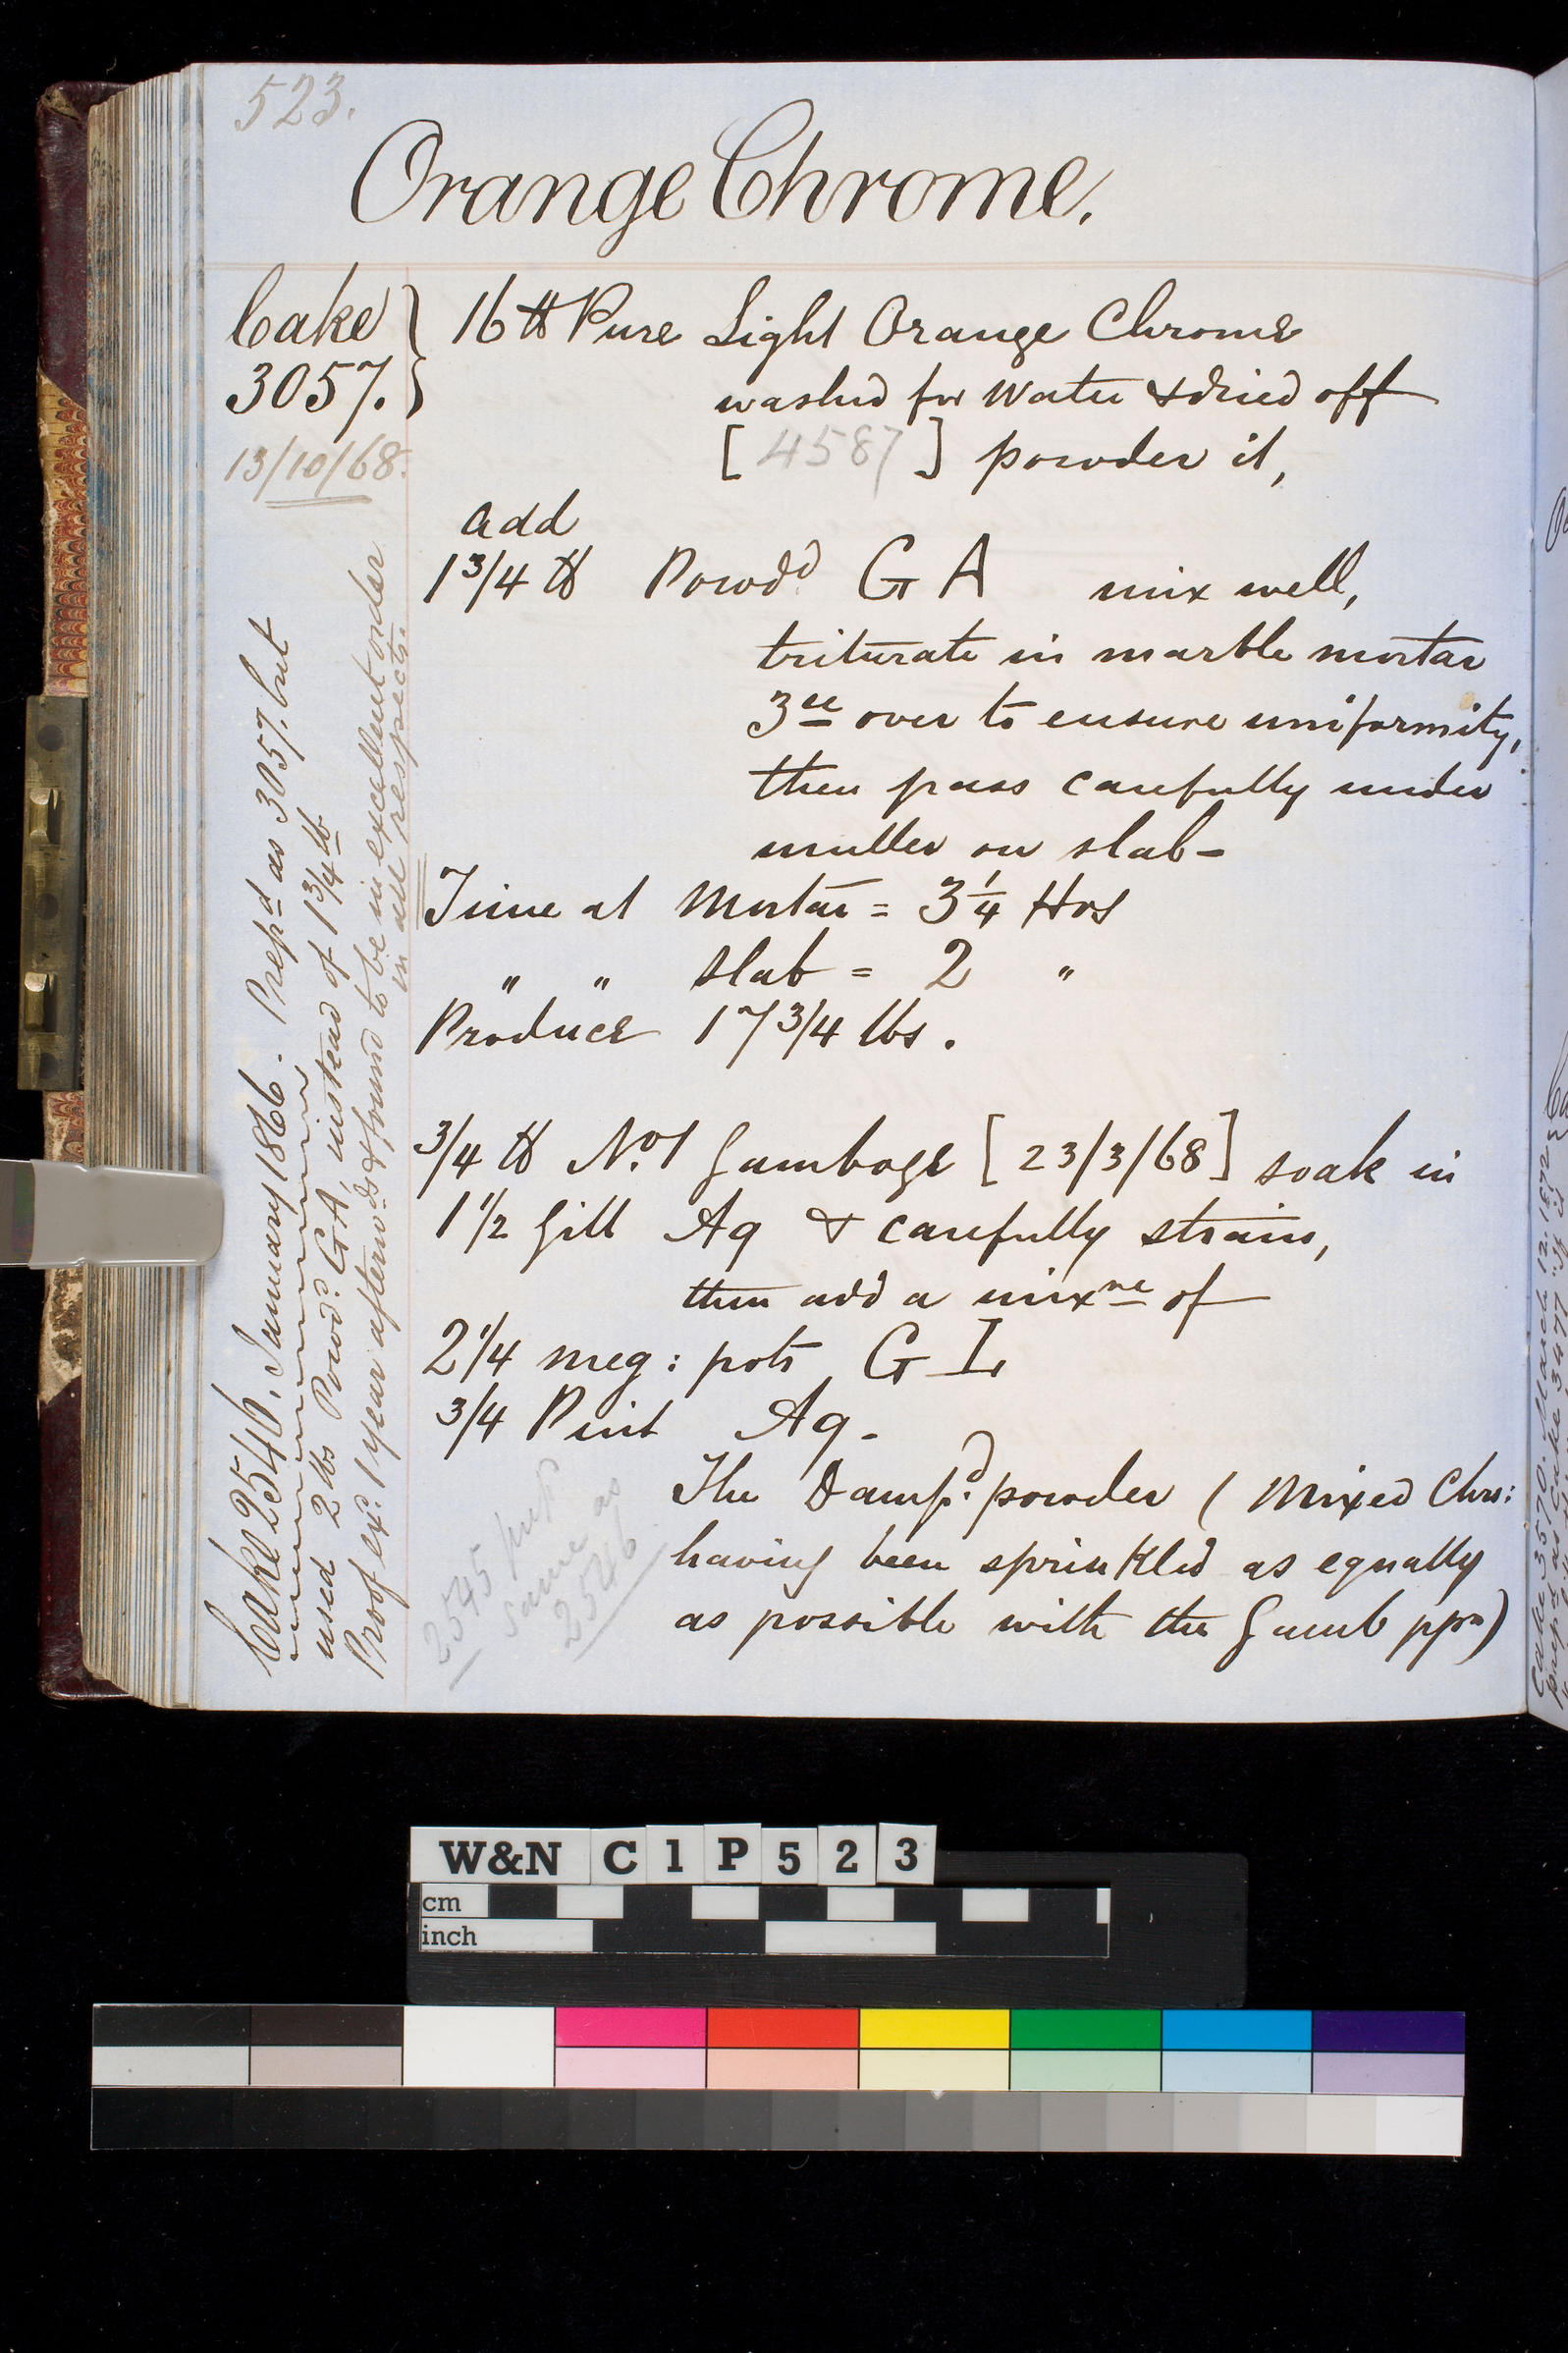 523.
Orange Chrome.
Cake } 16 lb Pure Light Orange Chrome
3057. } washed for Water & dried off
13/10/68. [4587] powder it,
add
1 3/4 lb Powdd G A mix well,
triturate in marble mortar
3ce over to ensure uniformity,
then pass carefully under
muller on slab-
Time at Mortar = 3 1/4 Hrs
" " Slab = 2 "
Produce 17 3/4 lbs.
3/4 lb No. 1 Gamboge [23/3/68] soak in
1 1/2 Gill Aq & carefully strain,
then add a mixre of
2 1/4 meg: pots G L
3/4 Pint Aq-
The Dampd. powder (Mixed Chro:
having been sprinkled as equally
as possible with the Gamb ppn)
Cake 2546. January 1866. Prepd as 3057. but
used 2 lbs Powd. GA, instead of 1 3/4 lb
Proof exd. 1 year afterwds & found to be in excellent order
in all respects.
2545 prepd
same as
2546
Cake 3570. March 12. 1872
prepd as Cake 3477
W&N C1P523
cm
inch